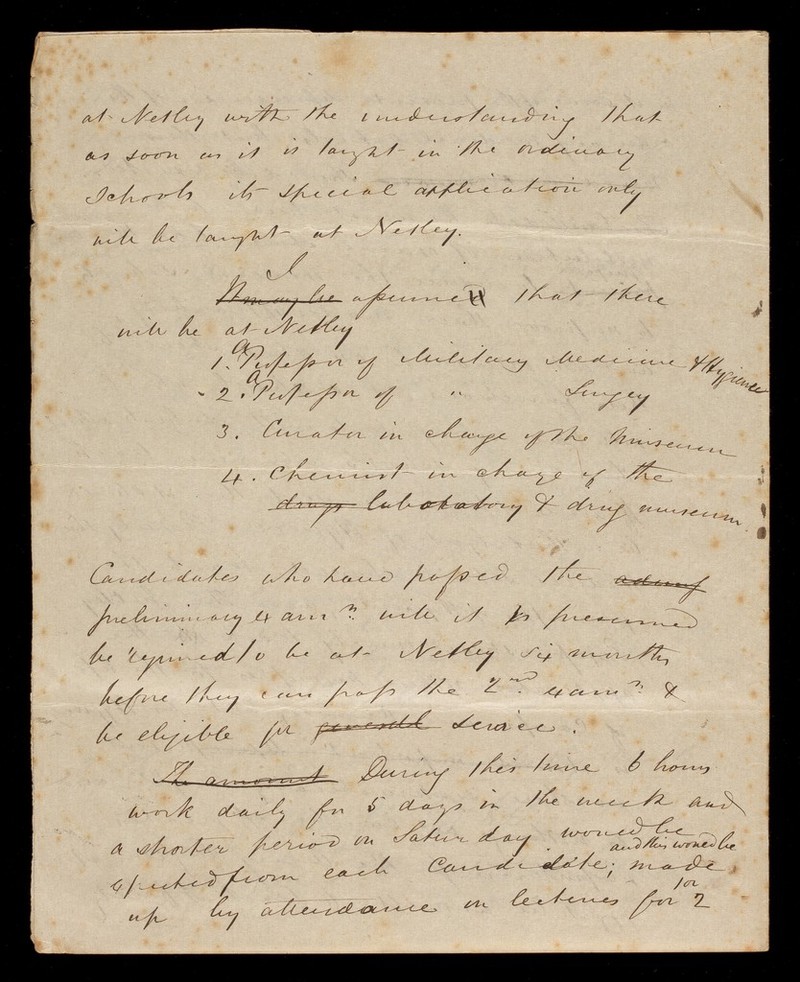 at Netley with the understanding that
as soon as it is taught in the ordinary
Schools its special application only
will be taught at Netley.
I
It may be assume that there
will be at Netley
1. a Professor of Military Medicine & Hygiene
2. a Professor of " Surgery
3. Curator in charge of the Museum
4. Chemist in charge of the
drugs laboratory & drug museum.
Candidates who have passed the
preliminary examn. will it is presumed
be required to be at Netley six months
before they can pass the 2nd. examn. &
be eligible for general service.
The amount During this time 6 hours
work daily for 5 days in the week and
a shorter period on Saturday would be
expected from each Candidate; and this would be made
up by attendance on lectures for 1 or 2